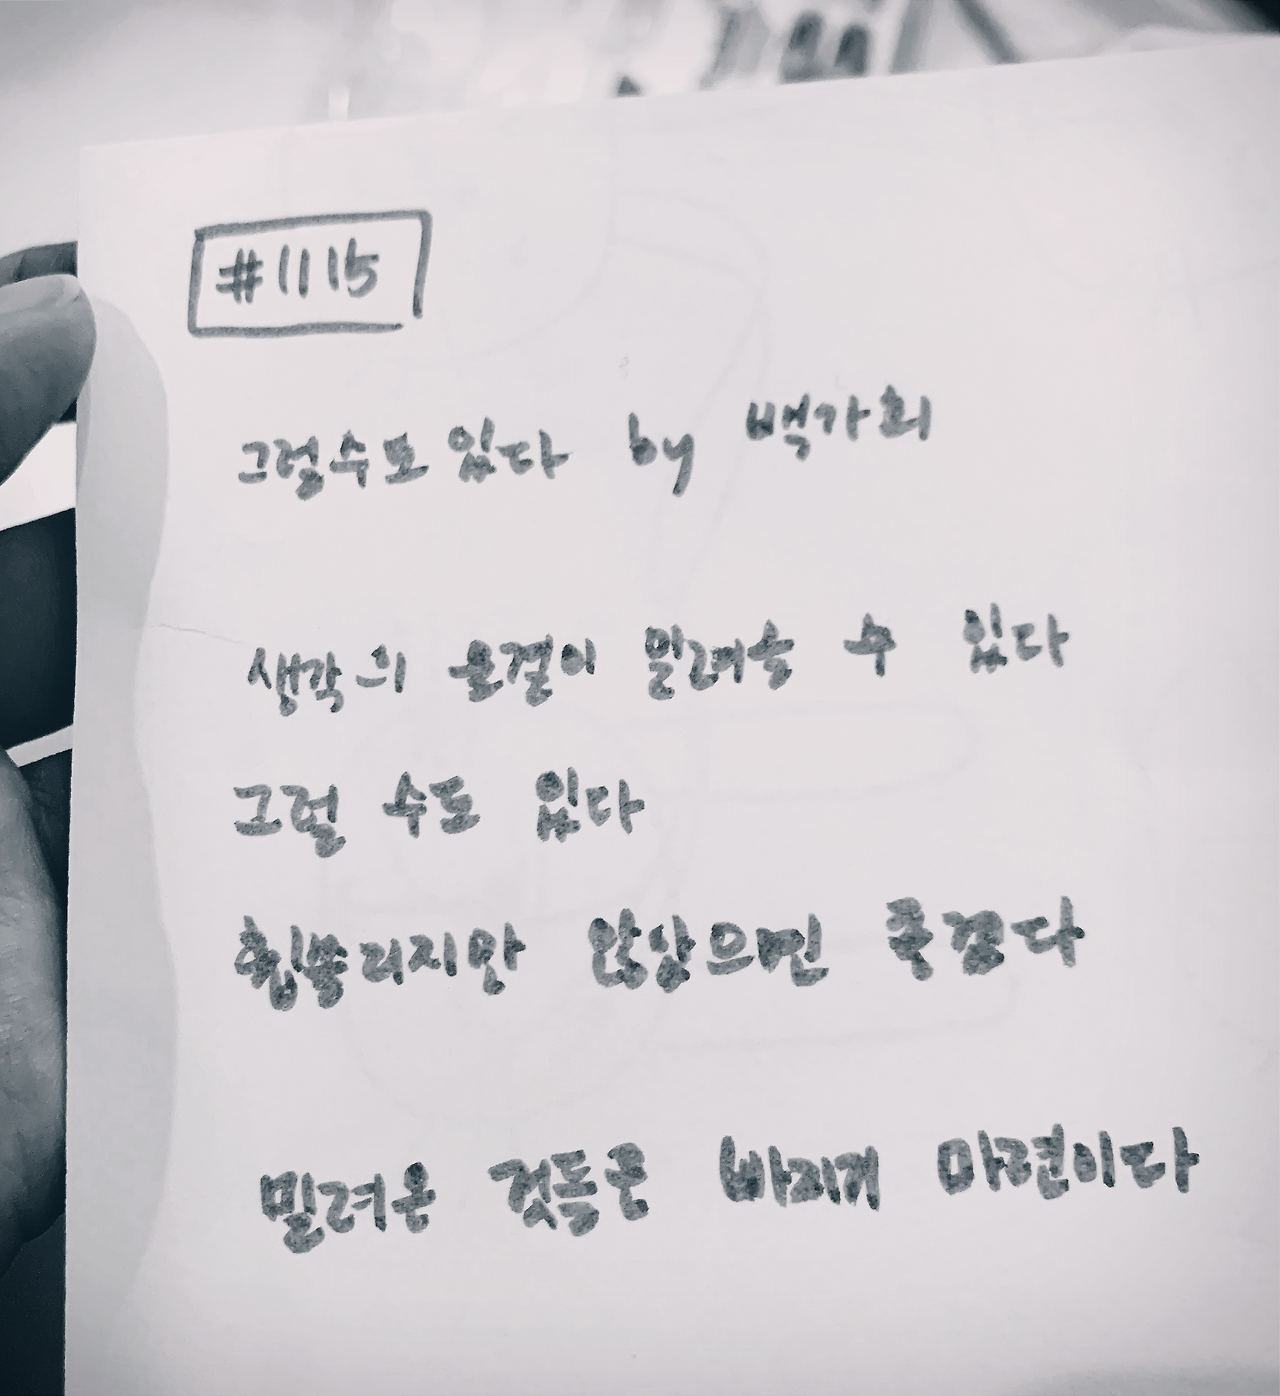 #1115
그럴수도 있다 by 백가희
생각의 물결이 밀려올 수 있다
그럴 수도 있다
휩쓸리지만 않았으면 좋겠다
밀려온 것들은 빠지게 마련이다